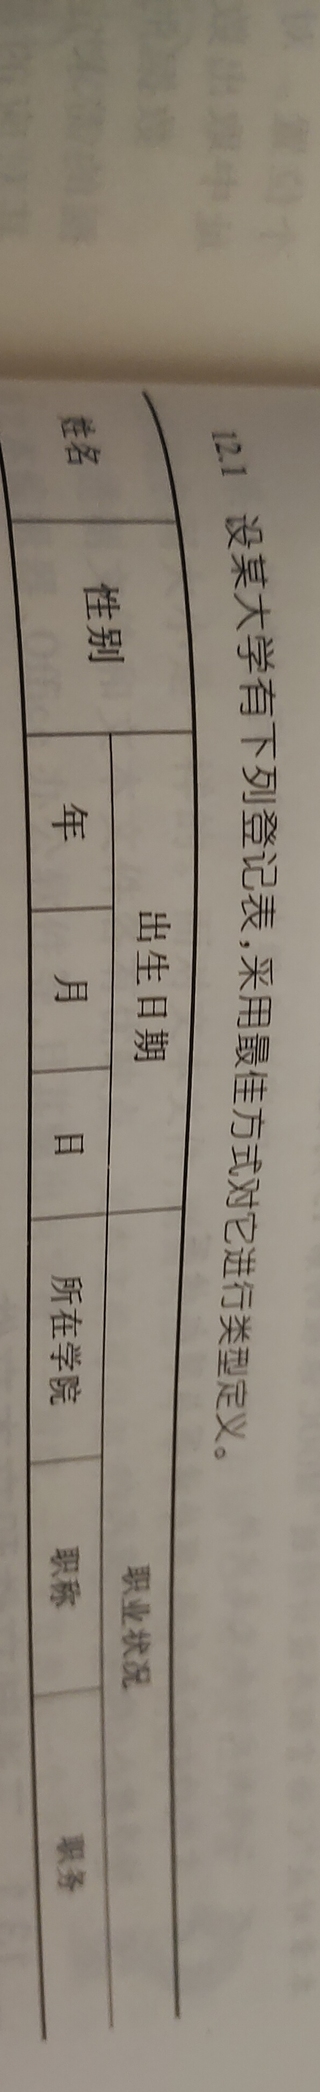 12.1 设某大学有下列登记表,采用最佳方式对它进行类型定义。
出生日期 职业状况
姓名 性别 年 月 日 所在学院 职称 职务